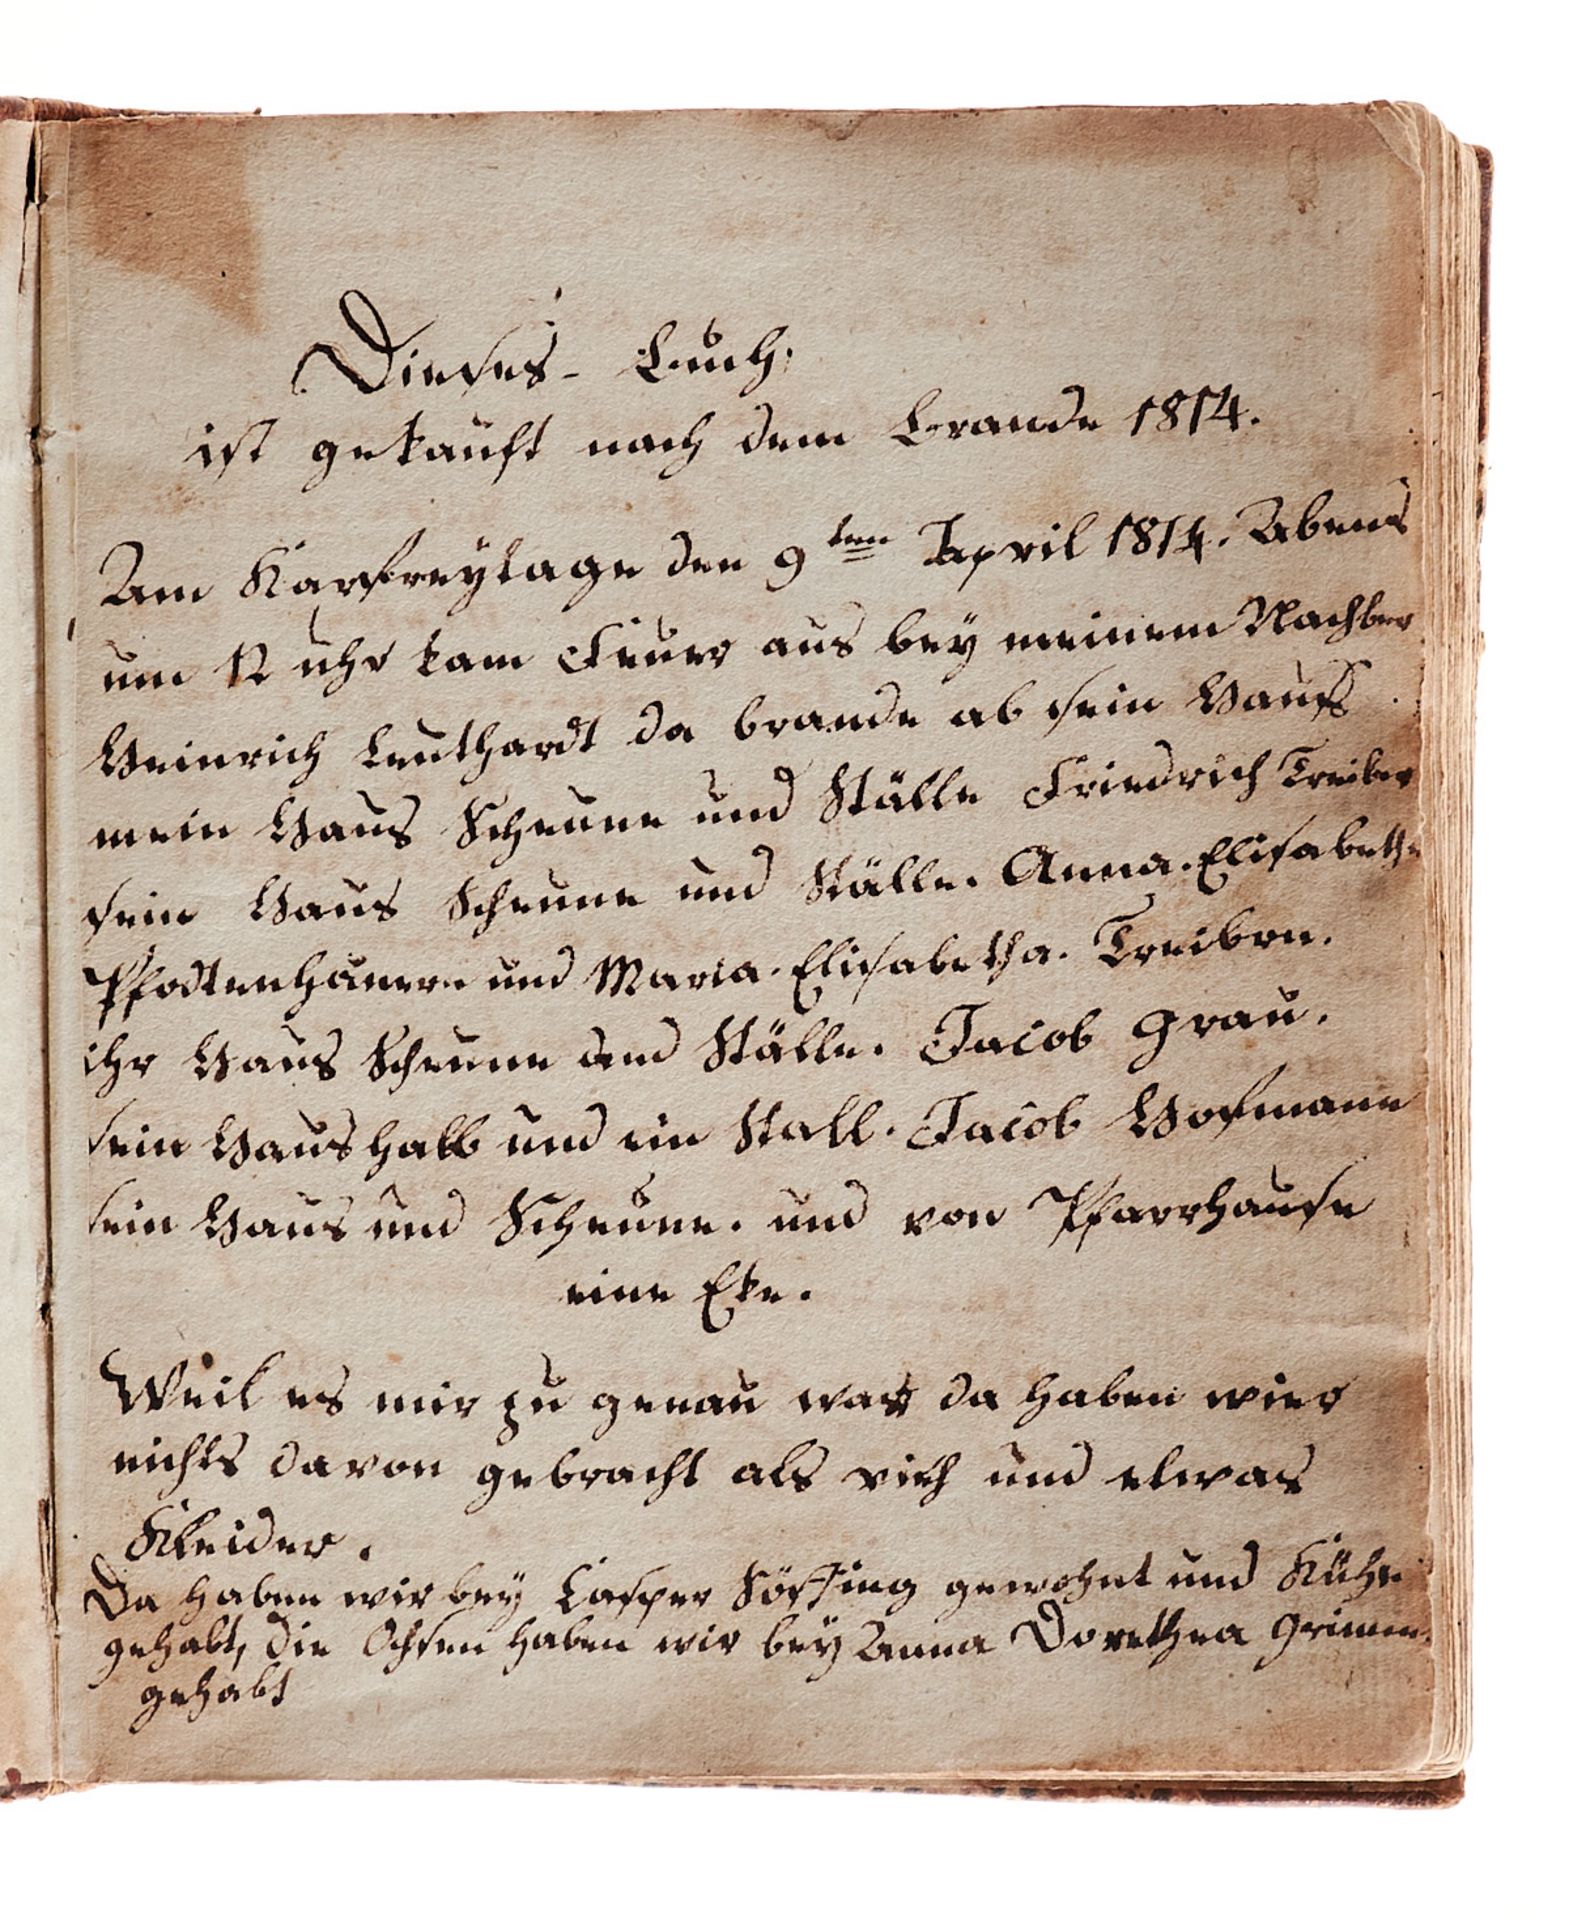 Dieses Buch
ist gekauft nach dem Brande 1814.
Am Karfreytage den 9ten April 1814. Abens
um 12 uhr kam Feuer aus bey meinem Nachber
Heinrich Leuthardt da brande ab sein Hauß
mein Haus Scheune und Ställe Friedrich Treiber
sein Haus Scheune und Ställe. Anna. Elisabetha
Pfodtenhauern und Maria. Elisabetha. Treibrn.
ihr Haus Scheune und Ställe. Jacob Grau.
sein Haus halb und ein Stall. Jacob Hofmann
sein Haus und Scheune. und von Pfarrhause
eine Eke.
Weil es mir zu genau war da haben wier
nichts davon gebracht als vieh und etwas
Kleider.
Da haben wir bey Casper Söffing gewohnt und Kühe
gehabt, die Ochsen haben wir bey Anna Dorethea Grimm.
gehabt